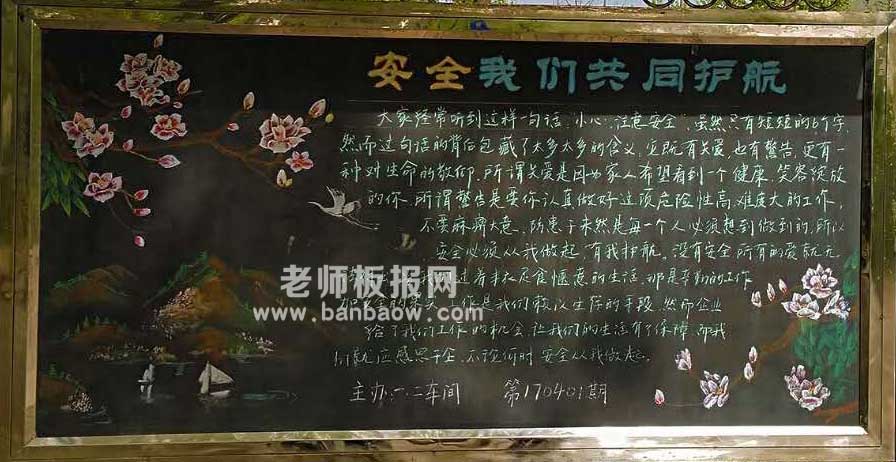 安全我们共同护航
大家经常听到这样一句话,小心,注意安全,虽然只有短短的6个字,
然而这句话的背后包藏了太多太多的含义,它既有关爱,也有警告,更有一
种对生命的敬仰,所谓关爱是因为家人希望看到一个健康,笑容绽放
的你,所谓警告是要你认真做好这项危险性高,难度大的工作,
不要麻痹大意,防患于未然是每一个人必须想到做到的,所以
安全必须从我做起,有我护航。没有安全所有的爱就无
过着丰衣足食惬意的生活,那是辛勤的工作
工作是我们赖以生存的手段,然而企业
给了我们工作的机会,让我们的生活有了保障,而我
们就应感恩于企,不论何时安全从我做起。
主办:一、二车间 第170401期
老师板报网
www.banbaow.com